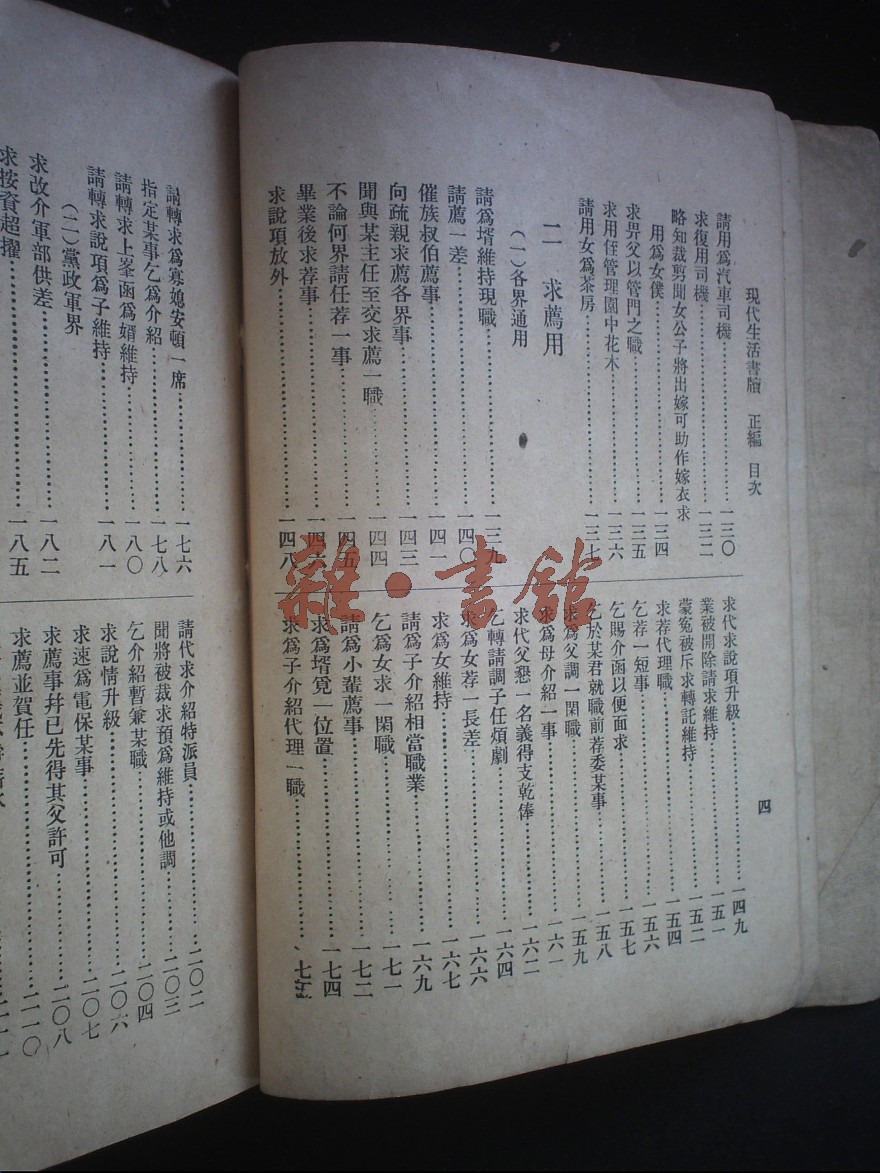 現代生活書牘 正編 目次
四
請用爲汽車司機……一三〇
求復用司機……一三二
略知裁剪聞女公子將出嫁可助作嫁衣求
用爲女僕……一三四
求畀父以管門之職……一三五
求用侄管理園中花木……一三六
請用女爲茶房……一三七
二 求薦用
(一)各界通用
請爲壻維持現職……一三九
請薦一差……一四〇
催族叔伯薦事……一四一
向疏親求薦各界事……一四三
聞與某主任至交求薦一職……一四四
不論何界請任荐一事……一四五
畢業後求荐事……一四六
求說項放外……一四八
求代求說項升級……一四九
業被開除請求維持……一五一
蒙冤被斥求轉託維持……一五二
求荐代理職……一五四
乞荐一短事……一五六
乞賜介函以便面求……一五七
乞於某君就職前荐委某事……一五八
求爲父調一閑職……一五九
求爲母介紹一事……一六一
求代父懇一名義得支乾俸……一六二
乞轉請調子任煩劇……一六四
求爲女荐一長差……一六六
求爲女維持……一六七
請爲子介紹相當職業……一六九
乞爲女求一閑職……一七一
請爲小輩薦事……一七二
求爲壻覓一位置……一七四
求爲子介紹代理一職……一七五
請轉求爲寡媳安頓一席……一七六
指定某事乞爲介紹……一七八
請轉求上峯函爲婿維持……一八〇
請轉求說項爲子維持……一八一
(二)黨政軍界
求改介軍部供差……一八二
求按資超擢……一八五
請代求介紹特派員……二〇二
聞將被裁求預爲維持或他調……二〇三
乞介紹暫兼某職……二〇四
求說情升級……二〇六
求速爲電保某事……二〇七
求薦事幷已先得其父許可……二〇八
求薦並賀任……二一〇
雜·書館